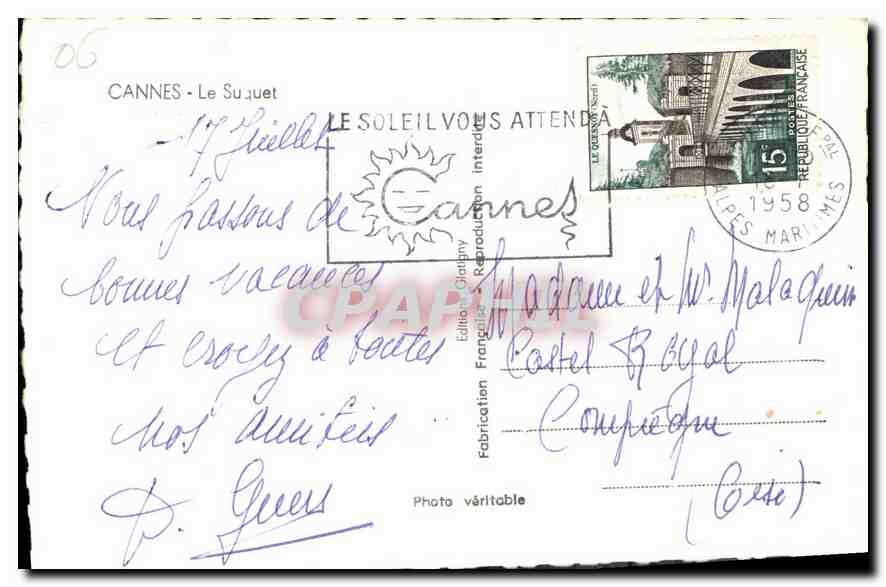 06
CANNES - Le Suquet
17 Juillet
Nous passons de
bonnes vacances
et croyez à toutes
nos amitiés
P. Guers
LE SOLEIL VOUS ATTEND À
Cannes
LE QUESNOY (Nord)
15F
POSTES
REPUBLIQUE FRANÇAISE
PAL
1958
ALPES MARITIMES
Editions Glatigny
Fabrication Française - Reproduction interdite
Madame et Mr. Malaquin
Castel Royal
Compiègne
(Oise)
Photo véritable
CPAPHIL